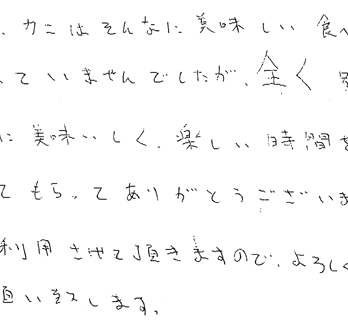 、カニはそんなに美味しい食べ
していませんでしたが、全く
に美味いしく、楽しい時間を
てもらってありがとうございま
利用させて頂きますので、よろしく
願い致します。